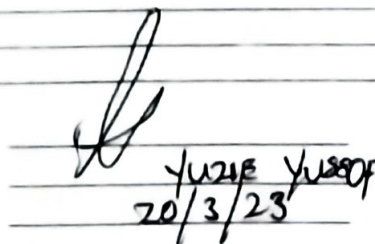 YUZIE YUSSOF
20/3/23